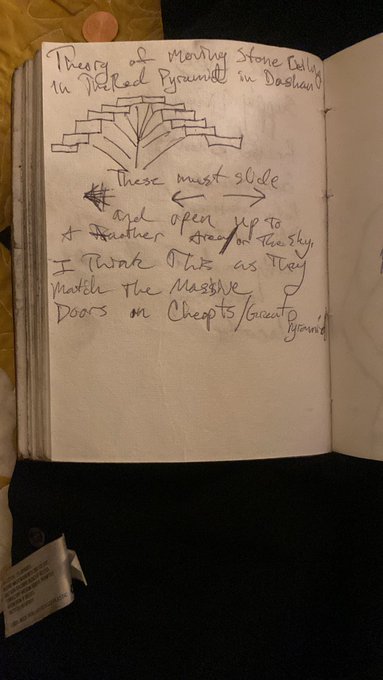 Theory of Moving Stone Ceilings
in The Red Pyramid in Dashan
These must slide
and open up to
A another Area/or The Sky.
I Think This as They
match the Massive
Doors in Cheopts/Great
Pyramid